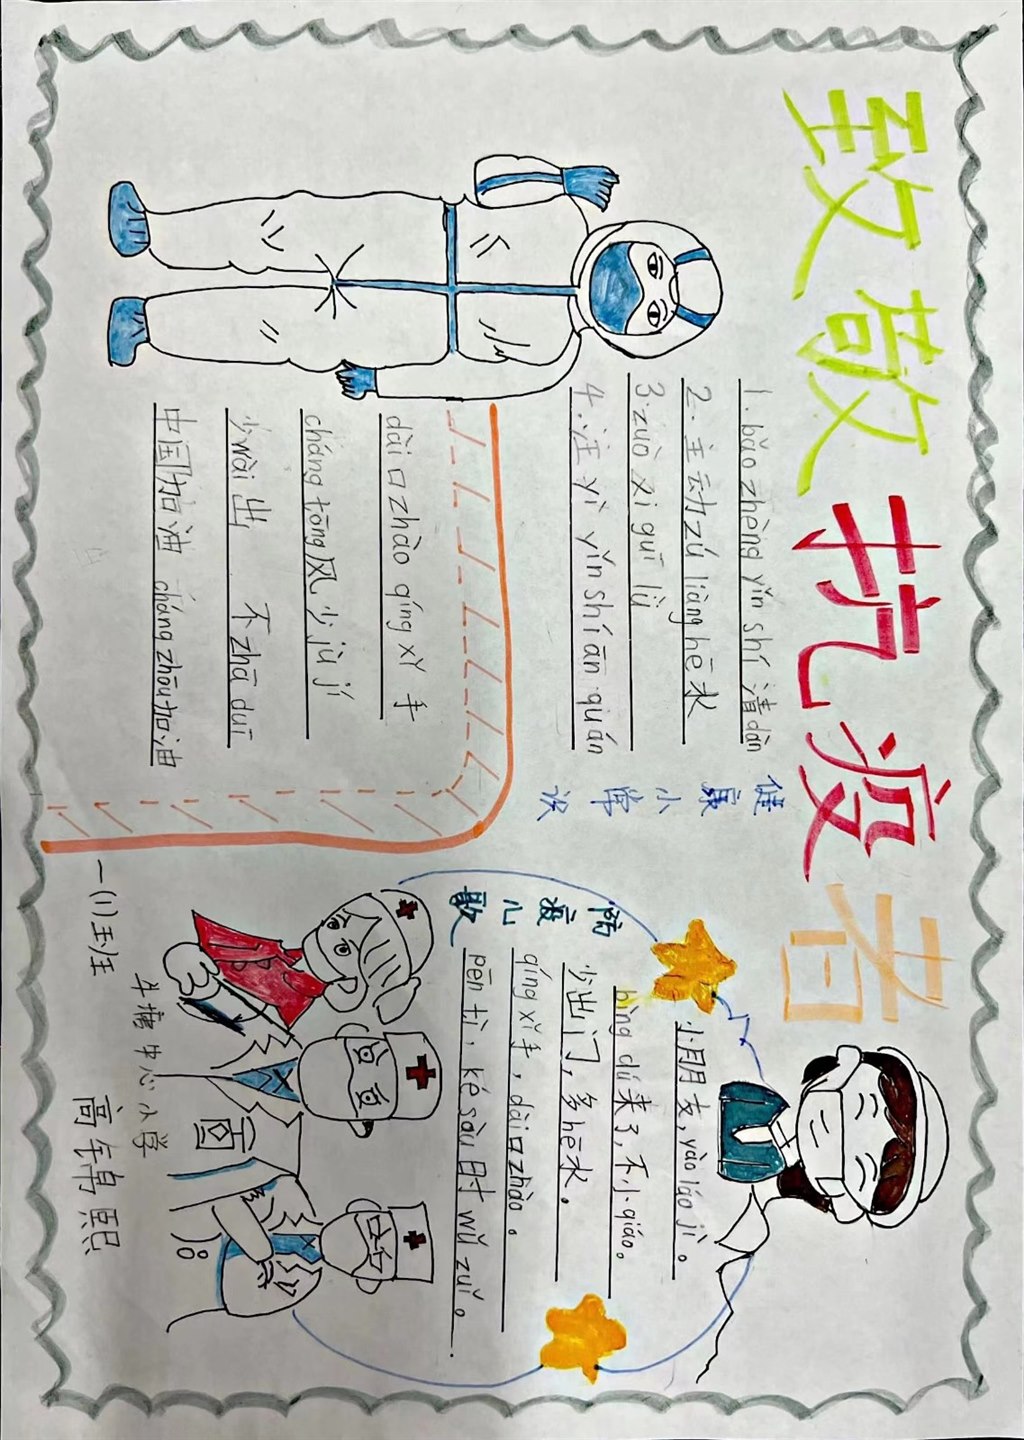 致敬抗疫者
健康小常识
1.bǎo zhèng yǐn shí 清dàn
2.主动zú liàng hē水
3.zuò xi guī lǜ
4.注yì yǐn shí ān quán
dài口zhào qíng xǐ 手
cháng tōng风少jù jí
少wài出 不zhā duī
中国加油 cháng zhōu加油
防疫儿歌
小朋友,yào láo jì。
bìng dú来了,不小qiáo。
少出门,多hē水。
qíng xǐ手,dài口zhào。
pēn tì,ké sòu时wǔ zuǐ。
一(1)班
牛塘中心小学